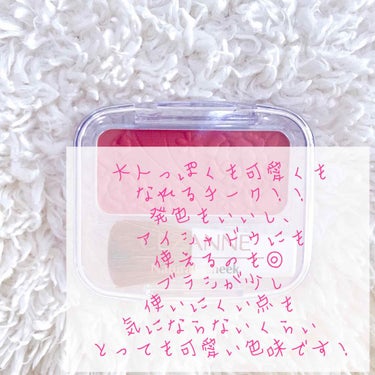 大人っぽくも可愛くも
なれるチーク！！
発色もいいし、
アイシャドウにも
使えるのも◎
ブラシが少し
使いにくい点も
気にならないくらい
とっても可愛い色味です！
ANNE
heek